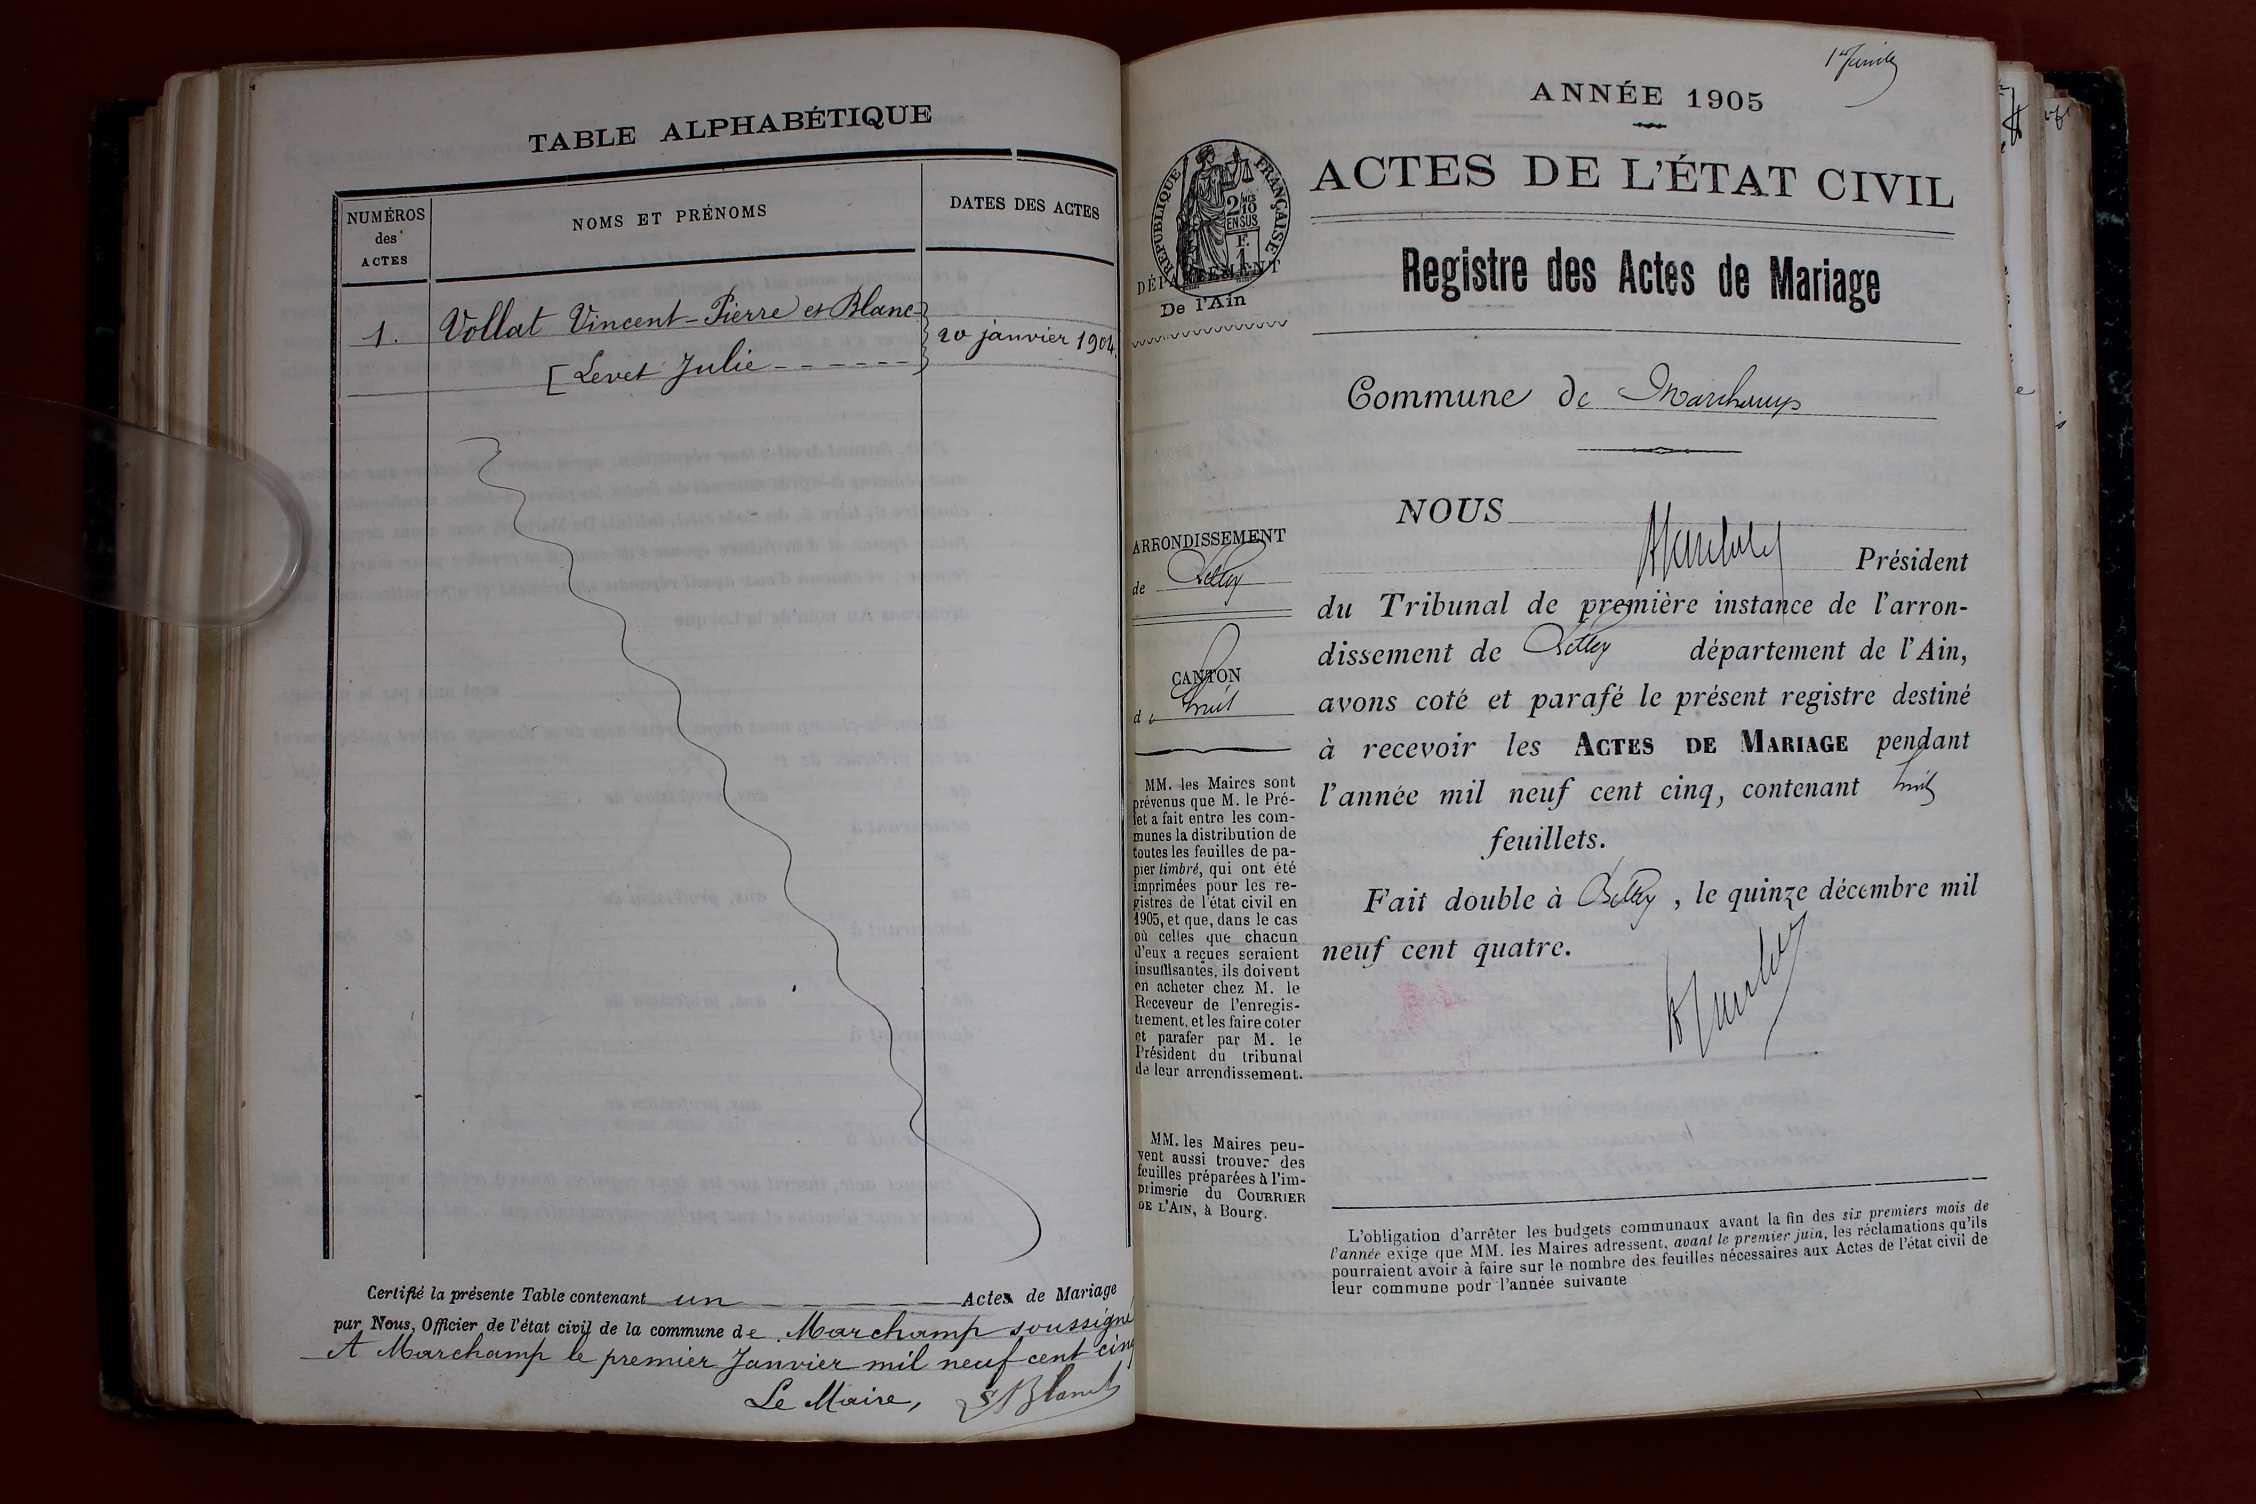 TABLE ALPHABÉTIQUE
NUMÉROS
des
ACTES
NOMS ET PRÉNOMS
DATES DES ACTES
1. Vollat Vincent-Pierre et Blanc-
[Levet Julie
20 janvier 1904.
Certifié la présente Table contenant un Actes de Mariage
par Nous, Officier de l'état civil de la commune de Marchamp soussigné
A Marchamp le premier Janvier mil neuf cent cinq
Le Maire,
1er
ANNÉE 1905
RÉPUBLIQUE FRANÇAISE
2/10 EN SUS
F. 1
DÉPARTEMENT
De l'Ain
ACTES DE L'ÉTAT CIVIL
Registre des Actes de Mariage
Commune de Marchamp
ARRONDISSEMENT
de Belley
CANTON
d
MM. les Maires sont
prévenus que M. le Pré-
fet a fait entre les com-
munes la distribution de
toutes les feuilles de pa-
pier timbré, qui ont été
imprimées pour les re-
gistres de l'état civil en
1905, et que, dans le cas
où celles que chacun
d'eux a reçues seraient
insuffisantes, ils doivent
en acheter chez M. le
Receveur de l'enregis-
trement, et les faire coter
et parafer par M. le
Président du tribunal
de leur arrondissement.
MM. les Maires peu-
vent aussi trouver des
feuilles préparées à l'im-
primerie du COURRIER
DE L'AIN, à Bourg.
NOUS
Président
du Tribunal de première instance de l'arron-
dissement de Belley département de l'Ain,
avons coté et parafé le présent registre destiné
à recevoir les ACTES DE MARIAGE pendant
l'année mil neuf cent cinq, contenant huit
feuillets.
Fait double à Belley, le quinze décembre mil
neuf cent quatre.
L'obligation d'arrêter les budgets communaux avant la fin des six premiers mois de
l'année exige que MM. les Maires adressent, avant le premier juin, les réclamations qu'ils
pourraient avoir à faire sur le nombre des feuilles nécessaires aux Actes de l'état civil de
leur commune pour l'année suivante